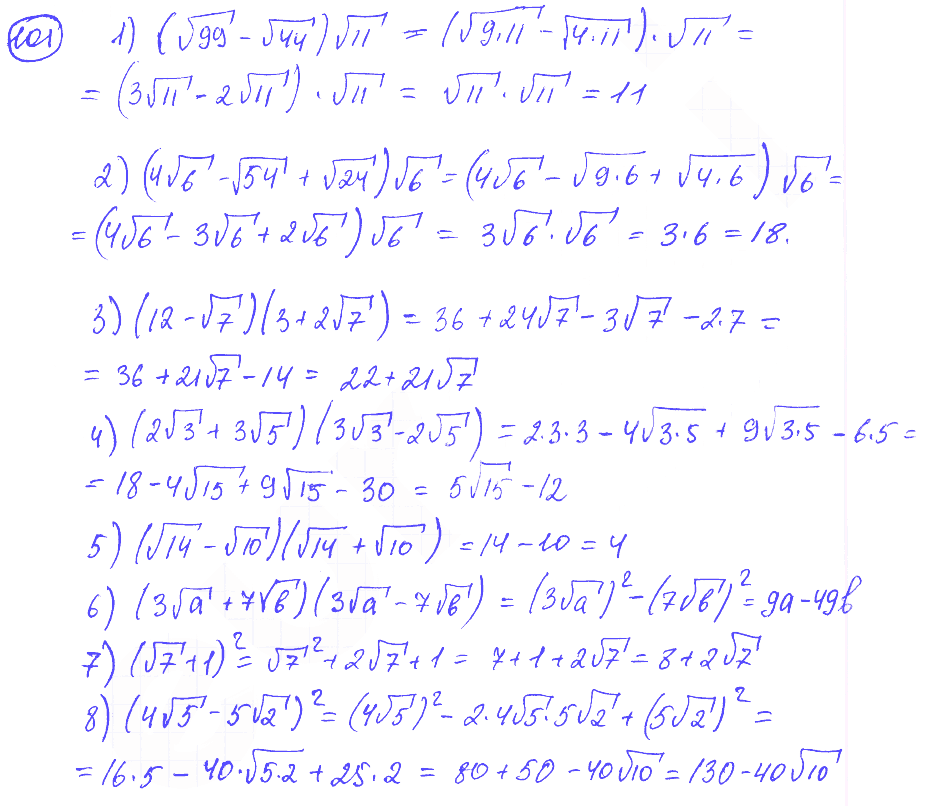 401 1) (√99 - √44)√11 = (√9·11 - √4·11)·√11 =
= (3√11 - 2√11)·√11 = √11·√11 = 11
2) (4√6 - √54 + √24)√6 = (4√6 - √9·6 + √4·6)√6 =
= (4√6 - 3√6 + 2√6)√6 = 3√6·√6 = 3·6 = 18.
3) (12 - √7)(3 + 2√7) = 36 + 24√7 - 3√7 - 2·7 =
= 36 + 21√7 - 14 = 22 + 21√7
4) (2√3 + 3√5)(3√3 - 2√5) = 2·3·3 - 4√3·5 + 9√3·5 - 6·5 =
= 18 - 4√15 + 9√15 - 30 = 5√15 - 12
5) (√14 - √10)(√14 + √10) = 14 - 10 = 4
6) (3√a + 7√b)(3√a - 7√b) = (3√a)² - (7√b)² = 9a - 49b
7) (√7 + 1)² = √7² + 2√7 + 1 = 7 + 1 + 2√7 = 8 + 2√7
8) (4√5 - 5√2)² = (4√5)² - 2·4√5·5√2 + (5√2)² =
= 16·5 - 40·√5·2 + 25·2 = 80 + 50 - 40√10 = 130 - 40√10